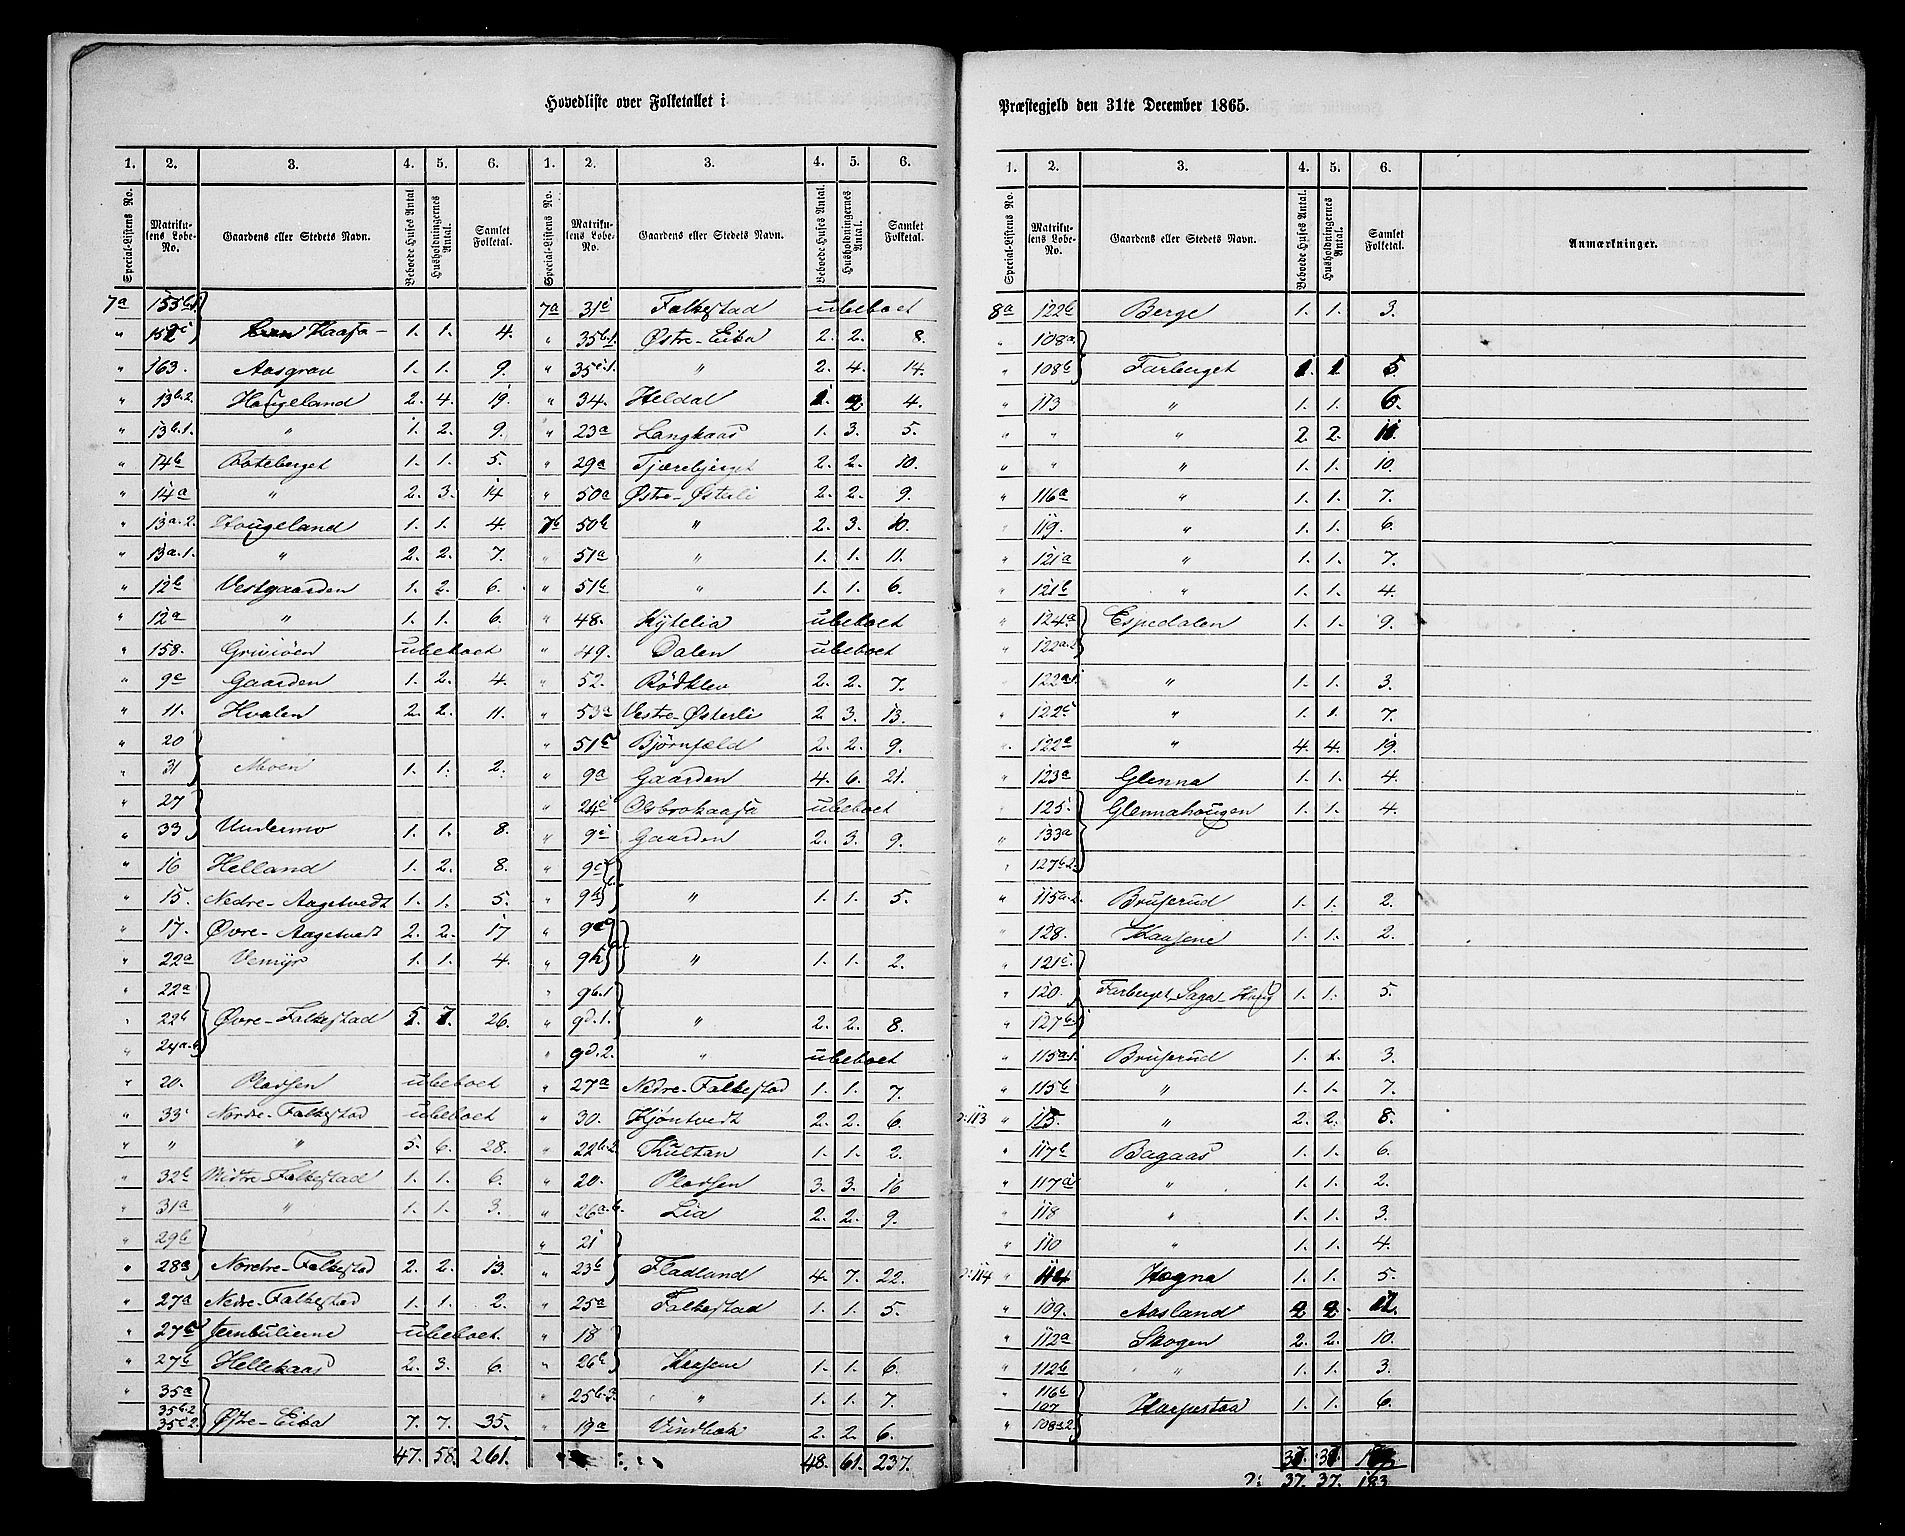 Hovedliste over Folketallet i
Præstegjeld den 31te December 1865.
1. 2. 3. 4. 5. 6. 1. 2. 3. 4. 5. 6.
Special-Listens No. Matrikulens Løbe-No. Gaardens eller Stedets Navn. Beboede Huses Antal Husholdningernes Antal. Samlet Folketal. Special-Listens No. Matrikulens Løbe-No. Gaardens eller Stedets Navn. Beboede Huses Antal. Husholdningernes Antal. Samlet Folketal.
7a 155b1
" 152c Kaasa 1. 1. 4.
" 163. Aasgrav 1. 1. 9.
" 13b.2. Hougeland 2. 4. 19.
" 13b.1. " 1. 2. 9.
" 14b Roteberget 1. 1. 5.
" 14a " 2. 3. 14
" 13a.2. Hougeland 1. 1. 4.
" 13a.1. " 2. 2. 7.
" 12b Vestgaarden 1. 2. 6.
" 12a " 1. 1. 6.
" 158. Griviøen ubeboet
" 9c Gaarden 1. 2. 4.
" 11. Hvalen 2. 2. 11.
" 20
" 31 Moen 1. 1. 2.
" 27
" 33 Undermo 1. 1. 8.
" 16 Helland 1. 2. 8.
" 15. Nedre-Aagetvedt 1. 1. 5.
" 17. Øvre-Aagetvedt 2. 2. 17
" 22a Vemyr 1. 1. 4.
" 22a
" 22b Øvre-Falkestad 5. 7. 26.
" 24a.b
" 20. Pladsen ubeboet
" 33 Nordre-Falkestad ubeboet
" " " 5. 6. 28.
" 32b Midtre-Falkestad 1. 1. 6.
" 31a " 1. 1. 3.
" 29b
" 28a Nordre-Falkestad 2. 2. 13.
" 27a Nedre-Falkestad 1. 1. 2.
" 27c Jernbulierne ubeboet.
" 27b Hellekaas 2. 3. 6.
" 35a
35b.2
35c2. Østre-Eika 7. 7. 35.
47. 58. 261.
7a 31c Falkestad ubeboet
" 35b.1. Østre-Eika 2. 2. 8.
" 35c.1. " 2. 4. 14.
" 34. Heldal 1. 2 4.
" 23a Langkaas 1. 3. 5.
" 29a Tjærebjerget 2. 2. 10.
" 50a Østre-Østerli 2. 2. 9.
7b 50b " 2. 3. 10.
" 51a " 1. 1. 11.
" 51b " 1. 1. 6.
" 48. Kylelia ubeboet
" 49. Dalen ubeboet
" 52. Rødklev 2. 2. 7.
" 53a Vestre-Østerli 2. 3. 13.
" 51c Bjørnfæld 2. 2. 9.
" 9a Gaarden 4. 6. 21.
" 24c Olsbrokaasa ubeboet
" 9i Gaarden 2. 3. 9.
" 9c
" 9h " 1. 1. 5.
" 9c
" 9h " 1. 1. 2.
" 9b.1
" 9d.1. " 2. 2. 8.
" 9d.2. " ubeboet
" 27a Nedre-Falkestad 1. 1. 7.
" 30. Kjøntvedt 2. 2. 6.
" 22b.2. Kultan 1. 1. 2.
" 20. Pladsen 3. 3. 16
" 26a.b. Lia 2. 2. 9.
" 21
" 23b Fladland 4. 7. 22.
" 25a Falkestad 1. 1. 5.
" 18
" 26b Kaasene 1. 1. 6.
" 25b.3. " 1. 1. 7.
" 19a Vindlaek 2. 2. 6.
48. 61. 237.
1. 2. 3. 4. 5. 6.
Special-Listens No. Matrikulens Løbe-No. Gaardens eller Stedets Navn. Beboede Huses Antal. Husholdningernes Antal. Samlet Folketal. Anmærkninger.
8a 122b Berge 1. 1. 3.
" 108a
" 108b Farberget 1. 1. 5.
" 113 " 1. 1. 6.
" " " 2. 2. 11.
" " " 1. 1. 10.
" 116a " 1. 1. 7.
" 119. " 1. 1. 6.
" 121a " 1. 1. 7.
" 121b " 1. 1. 4.
" 124a Espedalen 1. 1. 9.
" 122a.2
" 122a1 " 1. 1. 3.
" 122c " 1. 1. 7.
" 122a " 4. 4. 19.
" 123a Glenna 1. 1. 4.
" 125. Glennahougen 1. 1. 4.
" 133a
" 127b.2.
" 115a.2. Bruserud 1. 1. 2.
" 128. Kaasene 1. 1. 2.
" 121c
" 120. Farberget, Saga, Houg 1. 1. 5.
" 127b
" 115a.1. Bruserud 1. 1. 3.
" 115b " 1. 1. 7.
ɔ: 113 " 115. " 2. 2. 8.
" 117b Bagaas 1. 1. 6.
" 117a " 1. 1. 2.
" 118 " 1. 1. 3.
" 110 " 1. 1. 4.
ɔ: 114 " 114 Hogna 1. 1. 5.
" 109. Aasland 2 2. 12.
" 112a Skogen 2. 2. 10.
" 112b " 1. 1. 3.
" 116b
107 Harpestaa 1. 1. 6.
" 108a2.
ɔ: 37. 37. 183